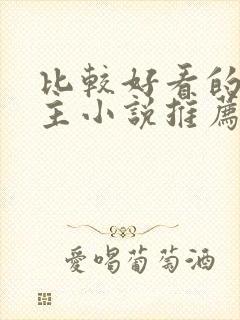 比較好看的
主小說推薦
愛喝葡萄酒